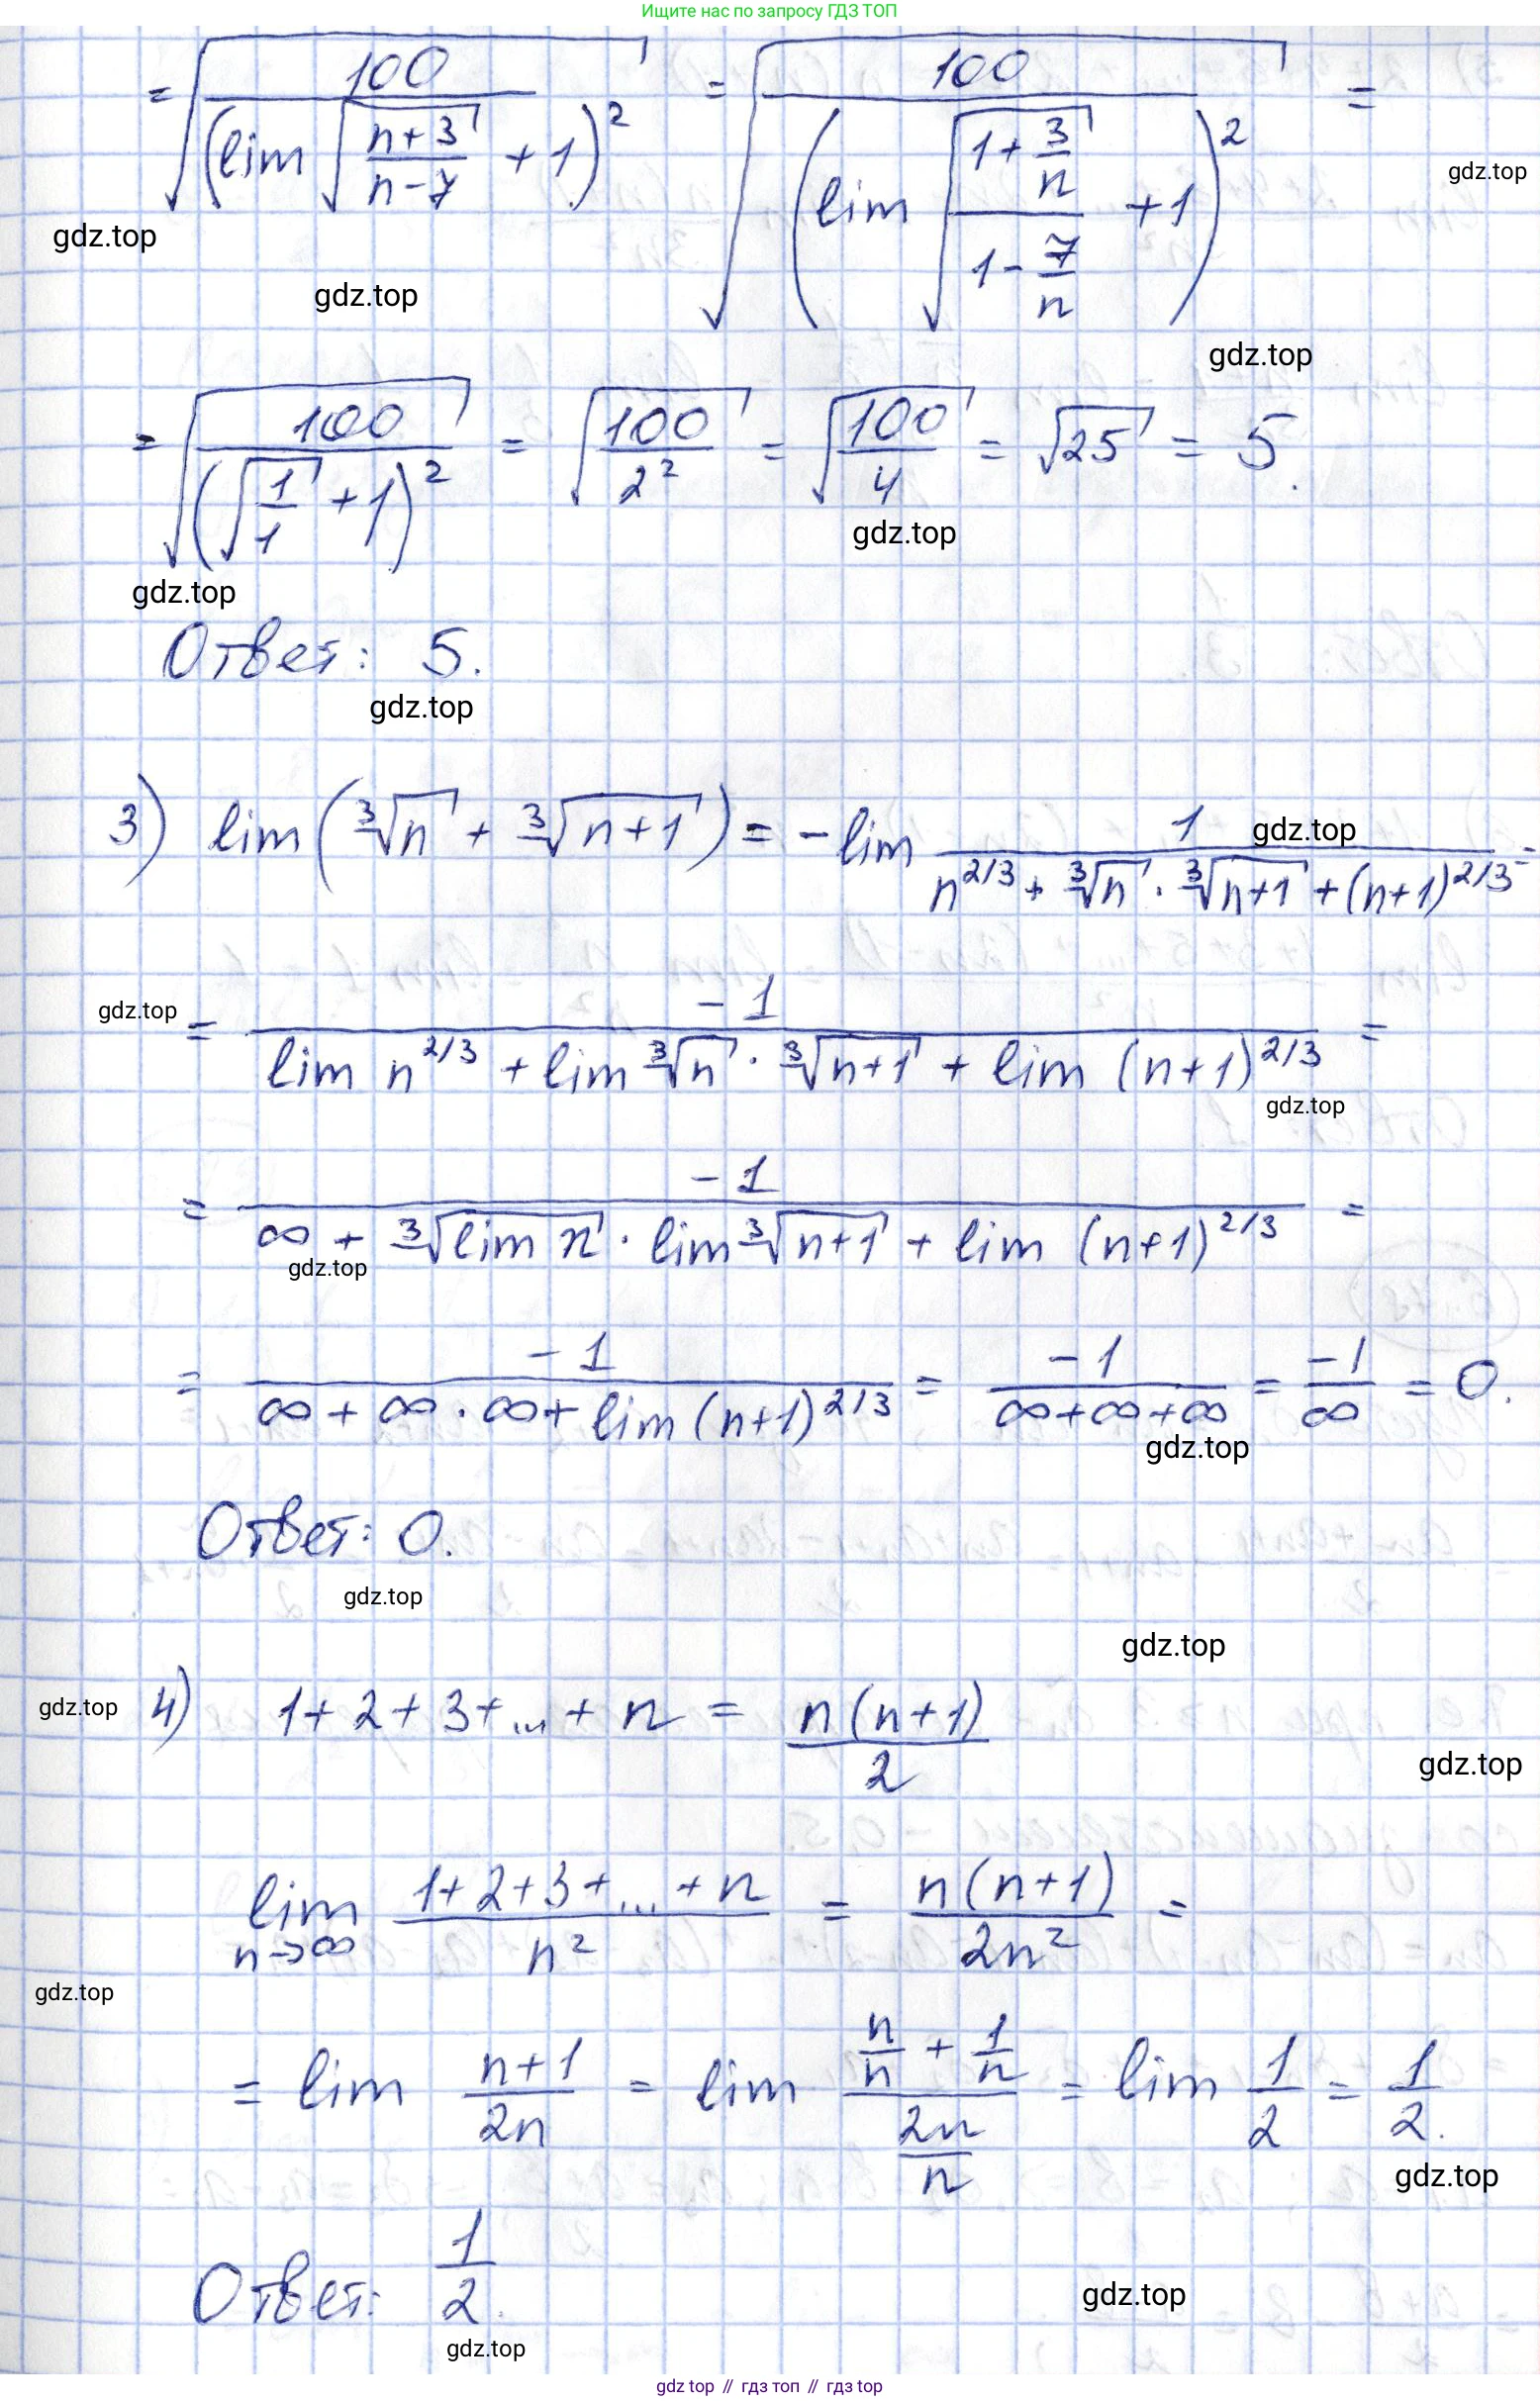 Ищите нас по запросу ГДЗ ТОП
= √(100/(lim √((n+3)/(n-7)) + 1)²) = √(100/(lim √((1+3/n)/(1-7/n)) + 1)²) =
gdz.top
gdz.top
gdz.top
gdz.top
= √(100/(√(1/1) + 1)²) = √(100/2²) = √(100/4) = √25 = 5.
gdz.top
gdz.top
Ответ: 5.
gdz.top
3) lim(∛n + ∛(n+1)) = -lim 1/(n^(2/3) + ∛n · ∛(n+1) + (n+1)^(2/3)) =
gdz.top
gdz.top
= -1/(lim n^(2/3) + lim ∛n · ∛(n+1) + lim (n+1)^(2/3)) =
gdz.top
= -1/(∞ + ∛(lim n) · lim ∛(n+1) + lim (n+1)^(2/3)) =
gdz.top
= -1/(∞ + ∞ · ∞ + lim (n+1)^(2/3)) = -1/(∞+∞+∞) = -1/∞ = 0.
gdz.top
Ответ: 0.
gdz.top
gdz.top
gdz.top
4) 1+2+3+...+n = n(n+1)/2
gdz.top
lim n→∞ (1+2+3+...+n)/n² = n(n+1)/2n² =
gdz.top
= lim (n+1)/2n = lim (n/n + 1/n)/(2n/n) = lim 1/2 = 1/2.
gdz.top
Ответ: 1/2.
gdz.top
gdz.top
gdz top // гдз топ // гдз top